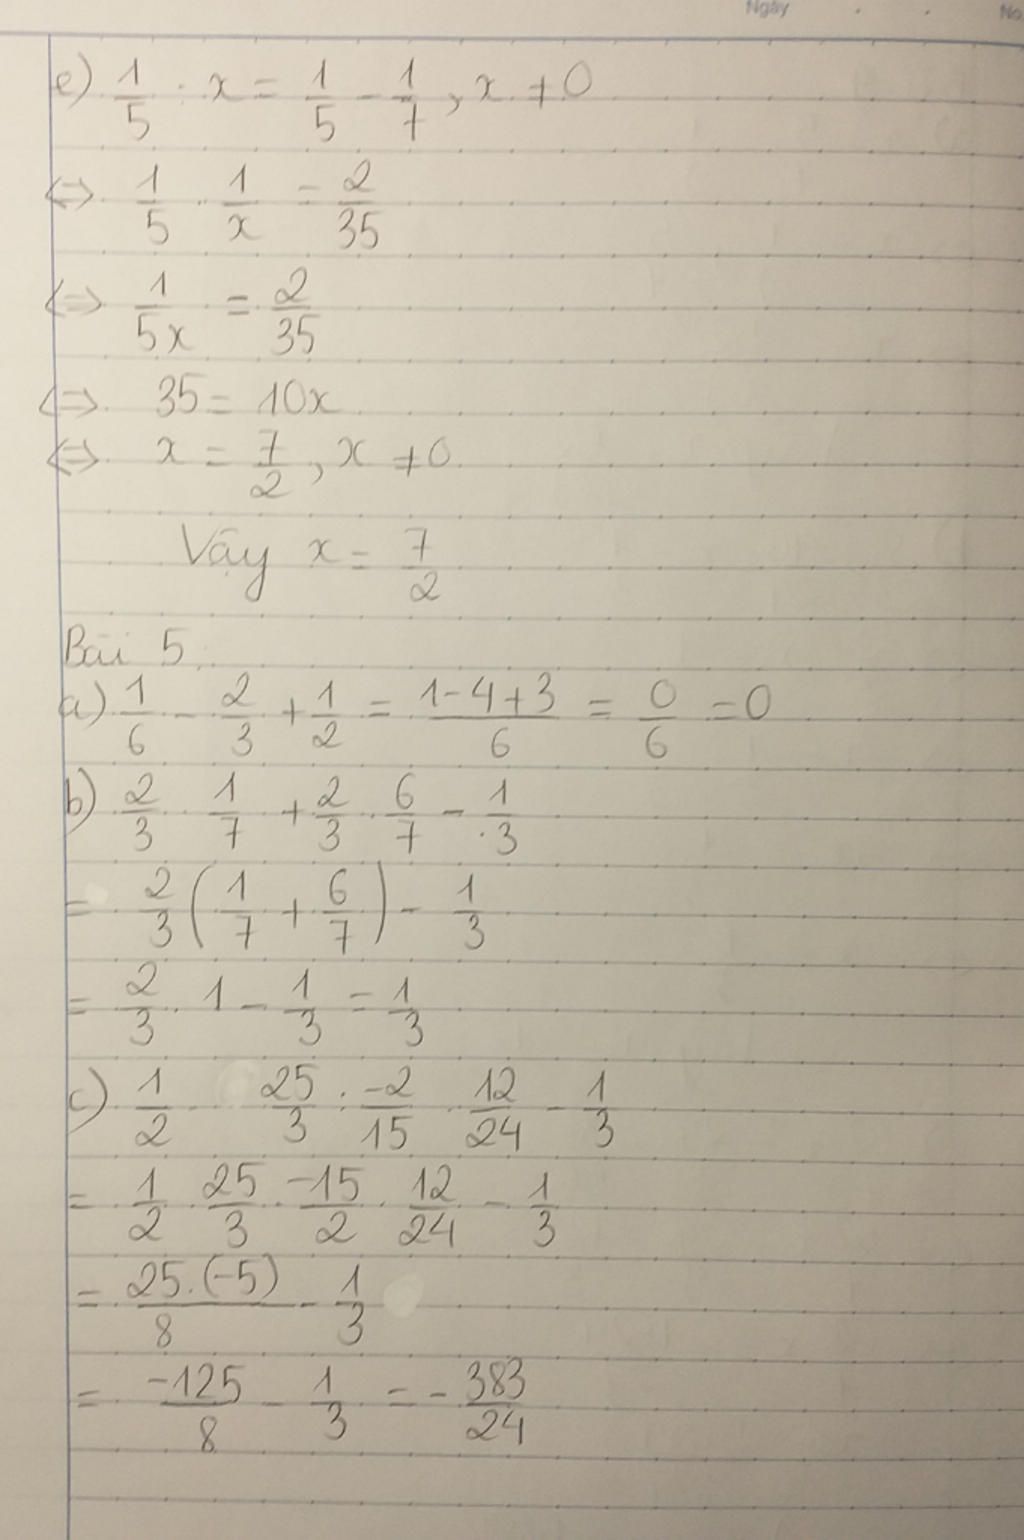 Ngày . . No
e) 1/5 : x = 1/5 - 1/7, x ≠ 0
⇔ 1/5 . 1/x = 2/35
⇔ 1/5x = 2/35
⇔ 35 = 10x
⇔ x = 7/2, x ≠ 0
Vậy x = 7/2
Bài 5
a) 1/6 - 2/3 + 1/2 = (1-4+3)/6 = 0/6 = 0
b) 2/3 . 1/7 + 2/3 . 6/7 - 1/3
= 2/3 (1/7 + 6/7) - 1/3
= 2/3 . 1 - 1/3 = 1/3
c) 1/2 . 25/3 : -2/15 . 12/24 - 1/3
= 1/2 . 25/3 . -15/2 . 12/24 - 1/3
= 25.(-5)/8 - 1/3
= -125/8 - 1/3 = - 383/24